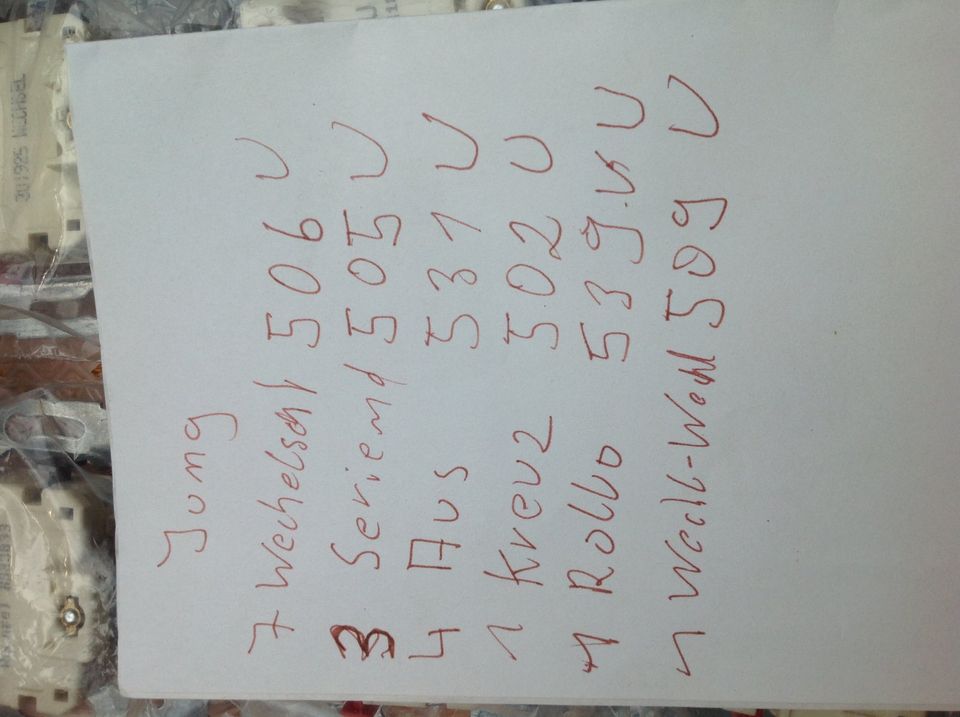 Jung
7 Wechelsch 506 U
3 Seriend 505 U
4 Aus 531 U
1 Kreuz 502 U
1 Rollo 539 VS U
1 Wechl-Wechl 509 U